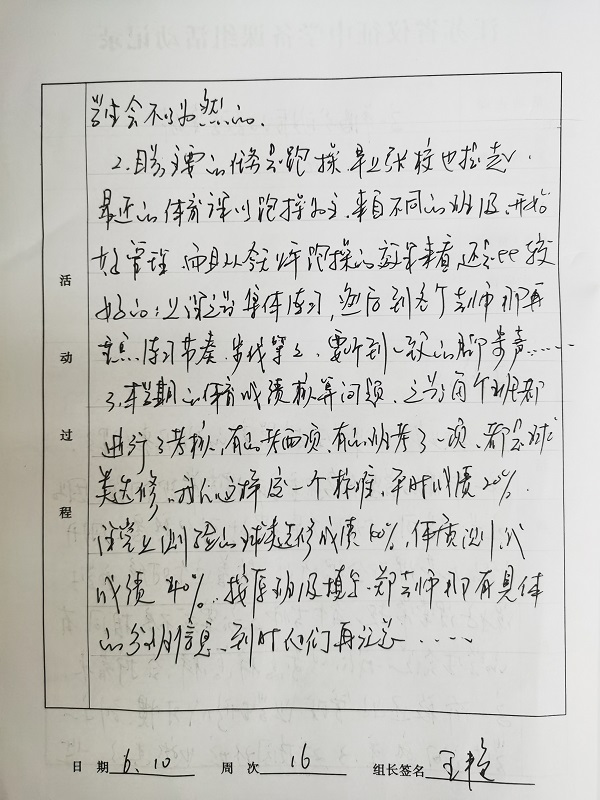 学生会不以为然的。
2.目前主要的任务是跑操,毕业张校也提起,
最近的体育课以跑操为主,来自不同的班级,开始
好管理,而且从今年跑操的效果来看,还是比较
好的;上课先集体练习,然后到各个老师那再
练习节奏、步伐等等,要听到一致的脚步声……
3、本学期的体育成绩核算问题,之前每个班都
进行了考核,有的考两项,有的班考了一项,都是球
类选修,我们这样定一个标准,平时成绩20%,
课堂上测验的球类选修成绩40%,体质测试
成绩40%,按原班级填写,郑老师那有具体
的分班信息,到时他们再汇总……
活动过程
日 期 6.10 周 次 16 组长签名